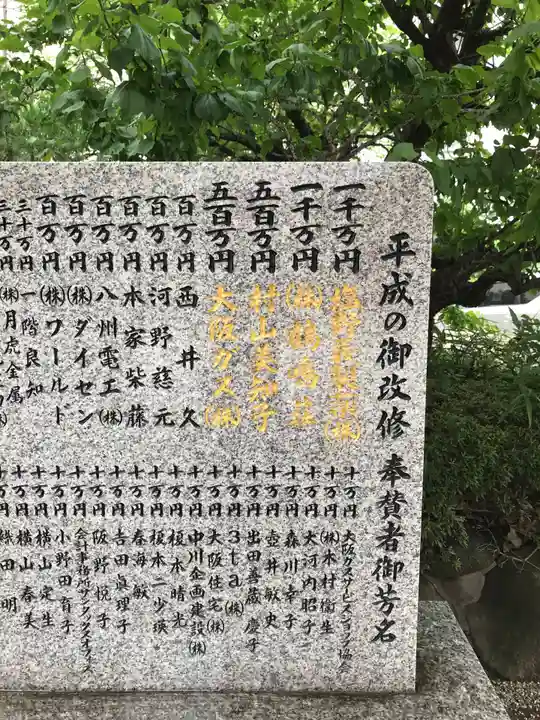 平成の御改修 奉賛者御芳名
一千万円 塩野義製薬(株)
一千万円 (株)鶴鳴荘
五百万円 村山美知子
五百万円 大阪ガス(株)
百万円 西井久
百万円 河野慈元
百万円 本家柴藤
百万円 八州電工(株)
百万円 (株)ダイセン
百万円 (株)ワールド
三十万円 一階良知
三十万円 (株)月虎金属
十万円 大阪ガスサービスショップ協会
十万円 (株)木村衛生
十万円 大河内昭子
十万円 森川幸子
十万円 壺井敏史
十万円 出田善蔵 慶子
十万円 3ta(株)
十万円 大阪住宅(株)
十万円 中川企画建設(株)
十万円 榎本晴光
十万円 榎本一少瑛
十万円 春海敏
十万円 吉田真理子
十万円 阪野悦子
十万円 会計事務所サンタックスオフィス
十万円 小野田育子
十万円 横山定生
十万円 横山春美
十万円 織田明